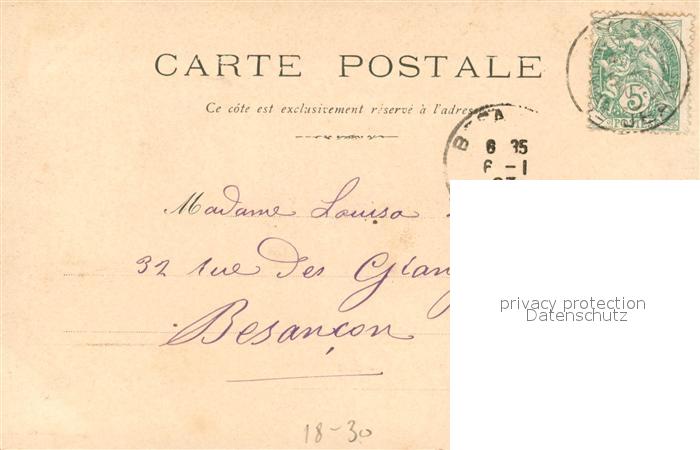 CARTE POSTALE
Ce côté est exclusivement réservé à l'adresse
5c
POSTES
6 35
6 - 1
Madame Louisa
32 rue des Grang
Besançon
privacy protection
Datenschutz
18-30